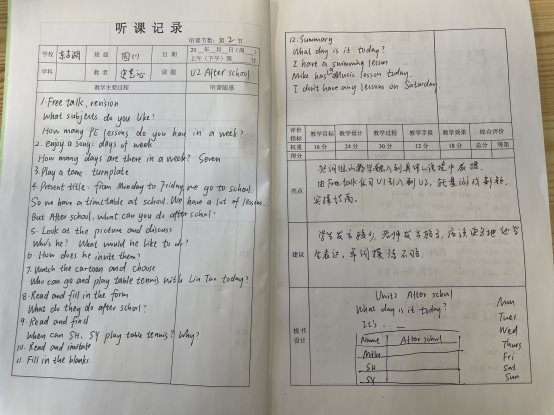 听课记录
听课节数：第2节
学校 东台湖 班级 四(1) 日期 20 年 月 日（周 ）
上午（下午）第 节
学科 教者 课题 U2 After school
教学主要过程 听课随感
1. Free talk, revision
What subjects do you like?
How many PE lessons do you have in a week?
2. Enjoy a song: days of week
How many days are there in a week? Seven
3. Play a game: turnplate
4. Present title: from Monday to Friday, we go to school.
So we have a timetable at school. We have a lot of lessons.
But After school, what can you do after school?
5. Look at the picture and discuss
Who's he? What would he like to do?
6. How does he invite them?
7. Watch the cartoon and choose
Who can go and play table tennis with Liu Tao today?
8. Read and fill in the form
What do they do after school?
9. Read and find
When can SH, SY play table tennis? Why?
10. Read and imitate
11. Fill in the blanks
12. Summary
What day is it today?
I have a swimming lesson
Mike has a Music lesson today.
I don't have any lessons on Saturday.
评价指标 教学目标 教学设计 教学过程 教学手段 教学效果 综合评价
权重 16分 24分 30分 12分 18分 总分 等第
得分
亮点
把词组的教学融入到具体的语境中教授.
由Free talk复习U1引入到U2, 转盘游戏新颖,
实操性高.
建议
学生发言较少, 老师发言较多, 应该更多地让学
生表达, 单词操练不够
板书设计
Unit2 After school
What day is it today?
It's ...
Name After school
Mike
SH
SY
Mon
Tues
Wed
Thurs
Fri
Sat
Sun